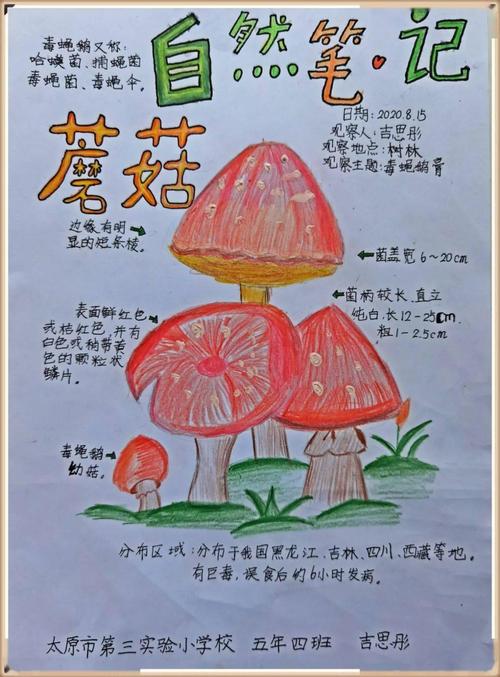 自然笔记
毒蝇鹅又称:
哈蟆菌、捕蝇菌
毒蝇菌、毒蝇伞。
蘑菇
日期:2020.8.15
观察人:吉思彤
观察地点:树林
观察主题:毒蝇鹅膏
边缘有明
显的短条棱。
菌盖宽 6~20cm
菌柄较长、直立
纯白,长12-25cm,
粗1-2.5cm
表面鲜红色
或桔红色,并有
白色或稍带黄
色的颗粒状
鳞片。
毒蝇鹅
幼菇。
分布区域:分布于我国黑龙江、吉林、四川、西藏等地。
有巨毒,误食后约6小时发病。
太原市第三实验小学校 五年四班 吉思彤